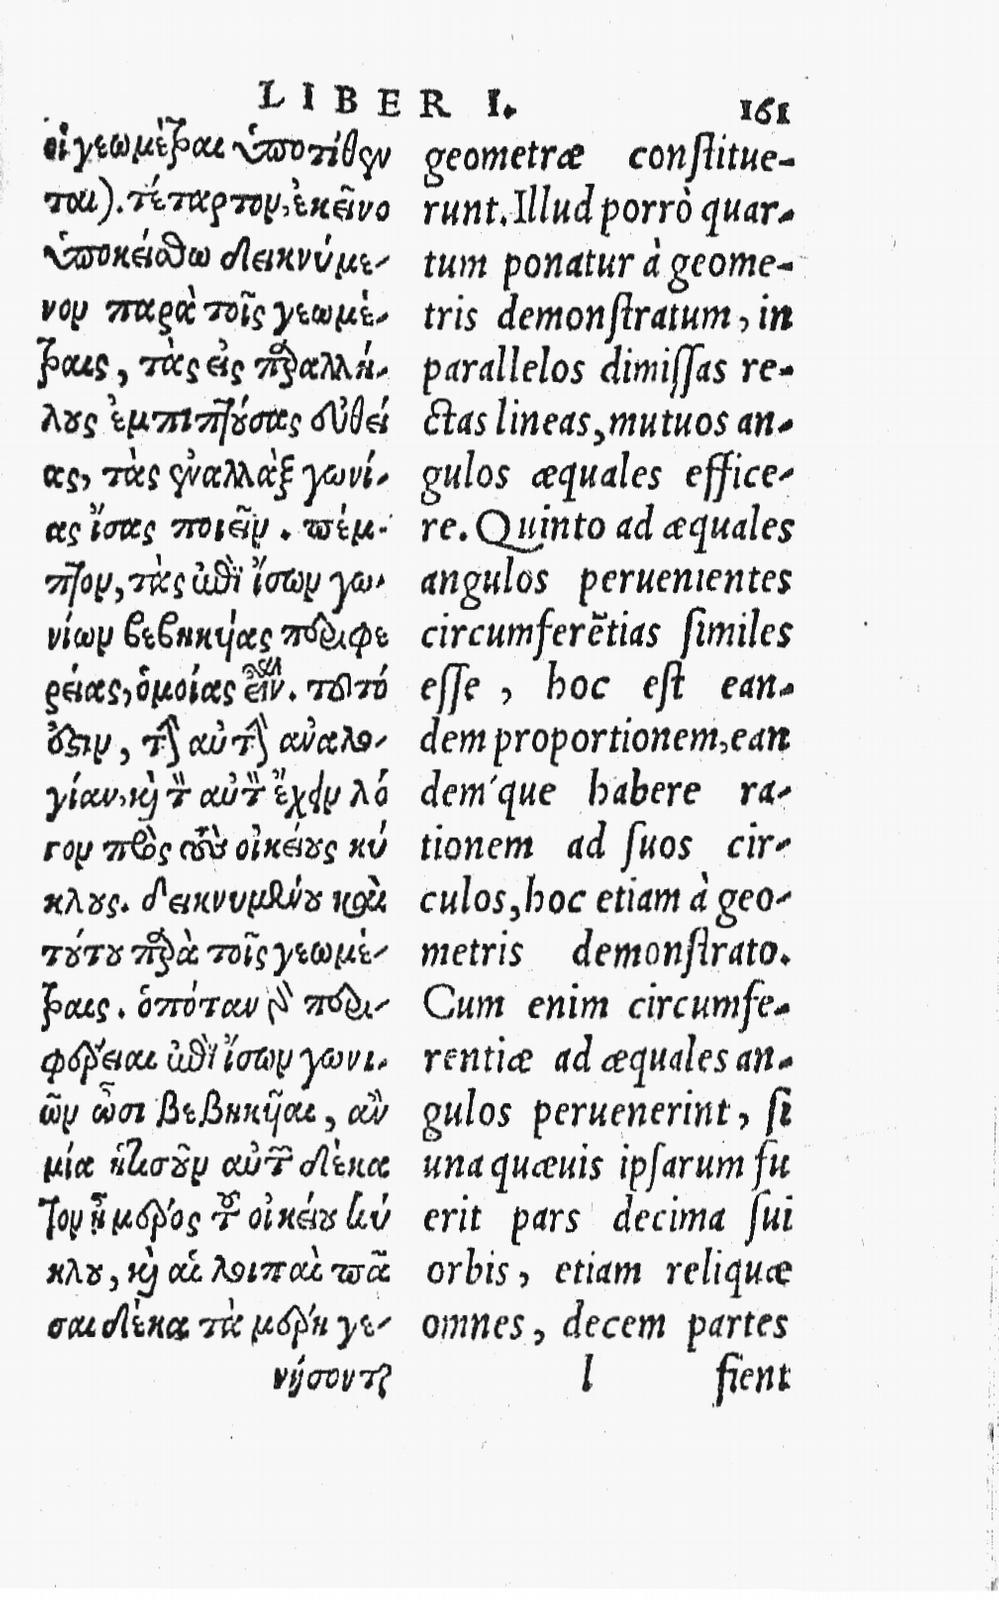 LIBER I. 161
οἱ γεωμέτραι ὑποτίθεν
ται). τέταρτον, ἐκεῖνο
ὑποκείσθω δεικνύμε-
νον παρὰ τοῖς γεωμέ-
τραις, τὰς εἰς παραλλή-
λους ἐμπιπτούσας εὐθεί
ας, τὰς ἐναλλὰξ γωνί-
ας ἴσας ποιεῖν. πέμ-
πτον, τὰς ἐπὶ ἴσων γω-
νίων βεβηκυίας περιφε
ρείας, ὁμοίας εἶναι. τουτό
ἐστιν, τὴν αὐτὴν ἀναλο-
γίαν, καὶ τὸν αὐτὸν ἔχειν λό
γον πρὸς τοὺς οἰκείους κύ
κλους. δεικνυμένου καὶ
τούτου παρὰ τοῖς γεωμέ-
τραις. ὁπόταν γὰρ περι-
φέρειαι ἐπὶ ἴσων γωνι-
ῶν ὦσι βεβηκυῖαι, ἂν
μία ἡτισοῦν αὐτῶν δέκα
τον ᾖ μέρος τοῦ οἰκείου κύ
κλου, καὶ αἱ λοιπαὶ πᾶ
σαι δέκατα μέρη γε-
νήσονται
geometræ conſtitue-
runt. Illud porrò quar-
tum ponatur à geome-
tris demonſtratum, in
parallelos dimiſſas re-
ctas lineas, mutuos an-
gulos æquales effice-
re. Quinto ad æquales
angulos peruenientes
circumferẽtias ſimiles
eſſe, hoc eſt ean-
dem proportionem, ean
dem´que habere ra-
tionem ad ſuos cir-
culos, hoc etiam à geo-
metris demonſtrato.
Cum enim circumfe-
rentiæ ad æquales an-
gulos peruenerint, ſi
una quæuis ipſarum fu
erit pars decima ſui
orbis, etiam reliquæ
omnes, decem partes
l fient